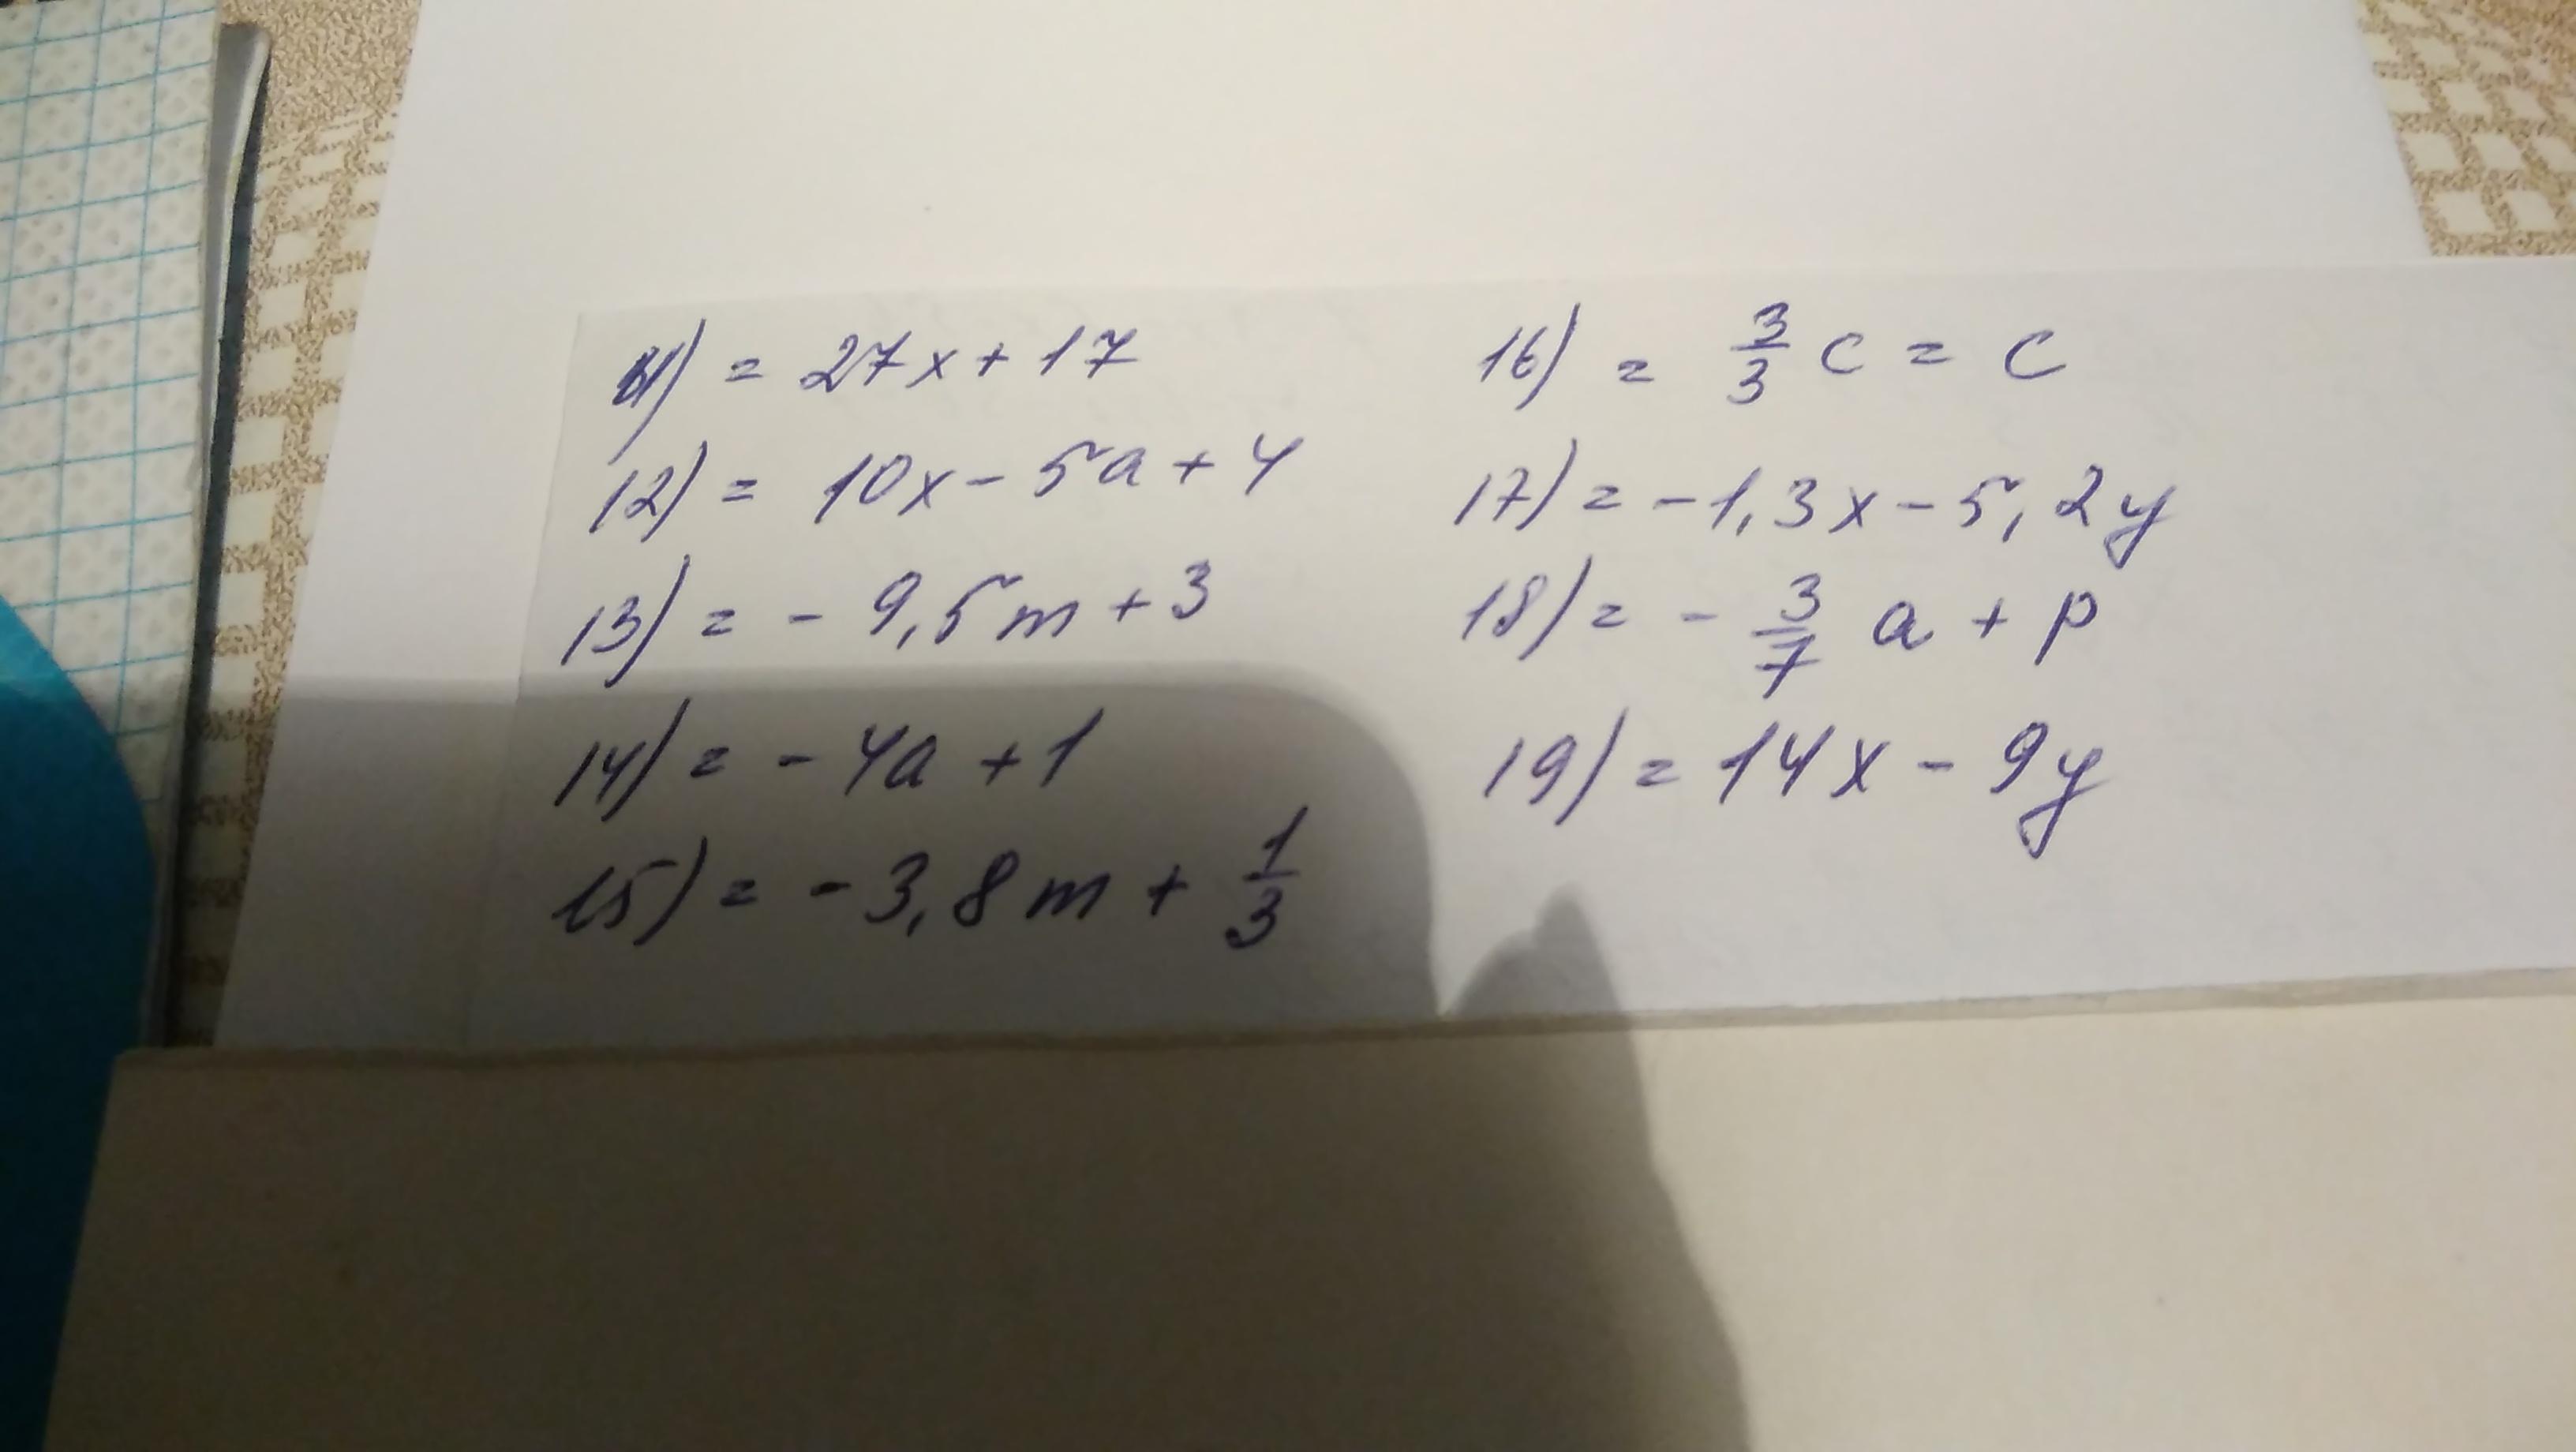 11) = 27x + 17
12) = 10x - 5a + 4
13) = - 9,5m + 3
14) = - 4a + 1
15) = - 3,8m + 1/3
16) = 3/3 c = c
17) = -1,3x - 5,2y
18) = - 3/7 a + p
19) = 14x - 9y